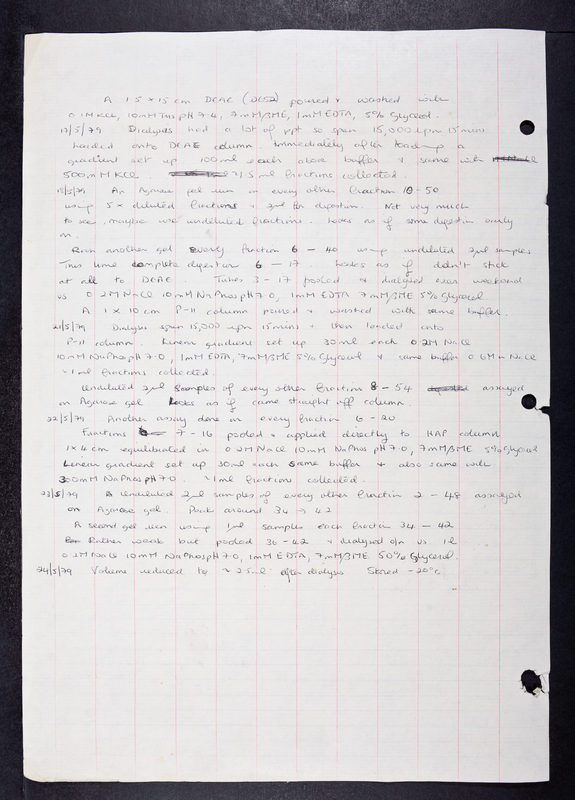 A 1.5 x 15 cm DEAE (DE52) poured & washed with
0.1M KCl, 10mM Tris pH 7.4, 7mM βME, 1mM EDTA, 5% Glycerol.
17/5/79 Dialysis had a lot of ppt so span 15,000 rpm 15 mins
loaded onto DEAE column immediately after loading a
gradient set up 100ml each above buffer & same with
500mM KCl. ~1.5 ml fractions collected.
18/5/79 An Agarose gel run on every other fraction 10-50
using 5x diluted fractions & 2μl for digestion. Not very much
to see, maybe use undiluted fractions. Looks as if some digestion early
on.
Run another gel every fraction 6 - 40 using undiluted 2μl samples
This time complete digestion 6 - 17. Looks as if didn't stick
at all to DEAE. Tubes 3 - 17 pooled & dialysed over weekend
vs 0.2M NaCl 10mM NaPhos pH 7.0, 1mM EDTA 7mM βME 5% Glycerol
A 1 x 10 cm P-11 column poured & washed with same buffer.
21/5/79 Dialysis span 15,000 rpm 15 mins & then loaded onto
P-11 column. Linear gradient set up 30ml each 0.2M NaCl
10mM NaPhos pH 7.0, 1mM EDTA, 7mM βME 5% Glycerol & same buffer 0.6M NaCl
~1ml fractions collected.
Undiluted 2μl samples of every other fraction 8 - 54 assayed
on Agarose gel Looks as if came straight off column.
22/5/79 Another assay done on every fraction 6 - 20
Fractions 7 - 16 pooled & applied directly to HAP column
1 x 4 cm equilibrated in 0.2M NaCl 10mM NaPhos pH 7.0, 7mM βME 5% Glycerol
Linear gradient set up 30ml each same buffer & also same with
300mM NaPhos pH 7.0. ~1ml fractions collected.
23/5/79 Undiluted 2μl samples of every other fraction 2 - 48 assayed
on Agarose gel. Peak around 34 → 42
A second gel run using 1μl samples each fraction 34 - 42
Rather weak but pooled 36-42 & dialysed o/n vs 1l
0.2M NaCl 10mM NaPhos pH 7.0, 1mM EDTA, 7mM βME 50% Glycerol.
24/5/79 Volume reduced to ~2.5ml after dialysis Stored -20°C.